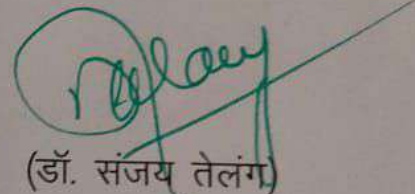 (डॉ. संजय तेलंग)